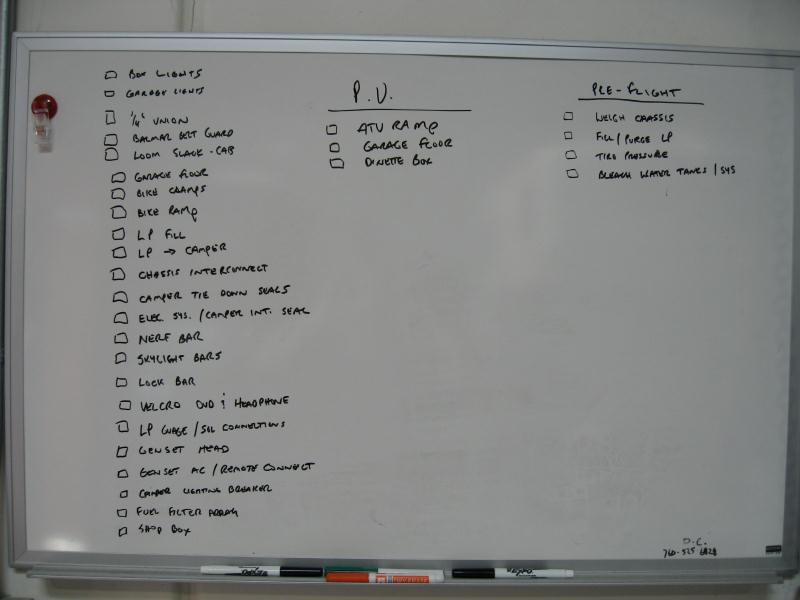 BOX LIGHTS
GARAGE LIGHTS
1/4" UNION
BALMAR BELT GUARD
LOOM SLACK - CAB
GARAGE FLOOR
BIKE CLAMPS
BIKE RAMP
LP FILL
LP → CAMPER
CHASSIS INTERCONNECT
CAMPER TIE DOWN SEALS
ELEC. SYS. / CAMPER INT. SEAL
NERF BAR
SKYLIGHT BARS
LOCK BAR
VELCRO DVD & HEADPHONE
LP GUAGE / SOL CONNECTIONS
GENSET HEAD
GENSET AC / REMOTE CONNECT
CAMPER LIGHTING BREAKER
FUEL FILTER ARRAY
SHOP BOX
P.U.
ATV RAMP
GARAGE FLOOR
DINETTE BOX
PRE-FLIGHT
WEIGH CHASSIS
FILL / PURGE LP
TIRE PRESSURE
BLEACH WATER TANKS / SYS
D.C.
760-525
EXPO